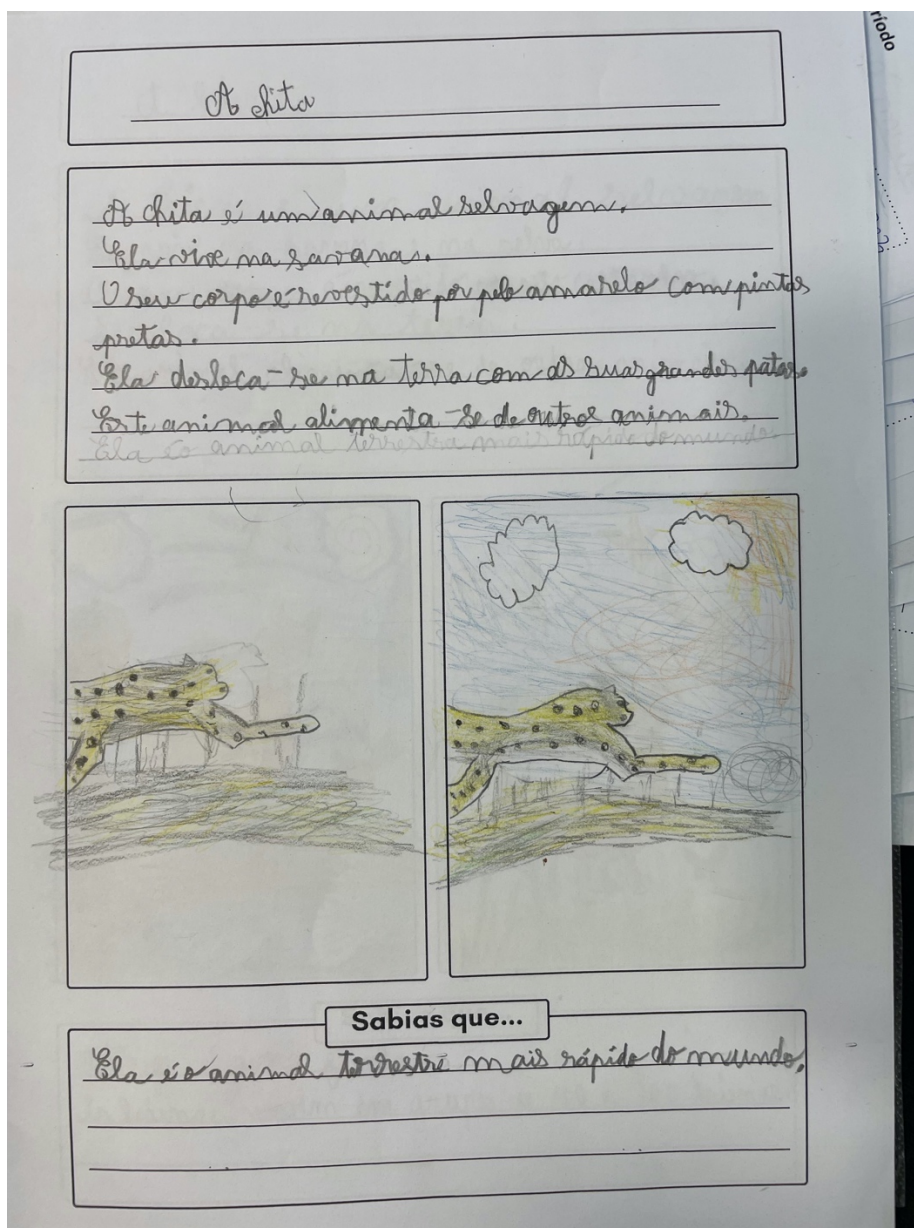 ríodo
A chita
A chita é um animal selvagem.
Ela vive na savana.
O seu corpo é revestido por pelo amarelo com pintas
pretas.
Ela desloca-se na terra com as suas grandes patas.
Este animal alimenta-se de outros animais.
Ela é o animal terrestra mais rápido do mundo.
Sabias que...
Ela é o animal terrestre mais rápido do mundo.